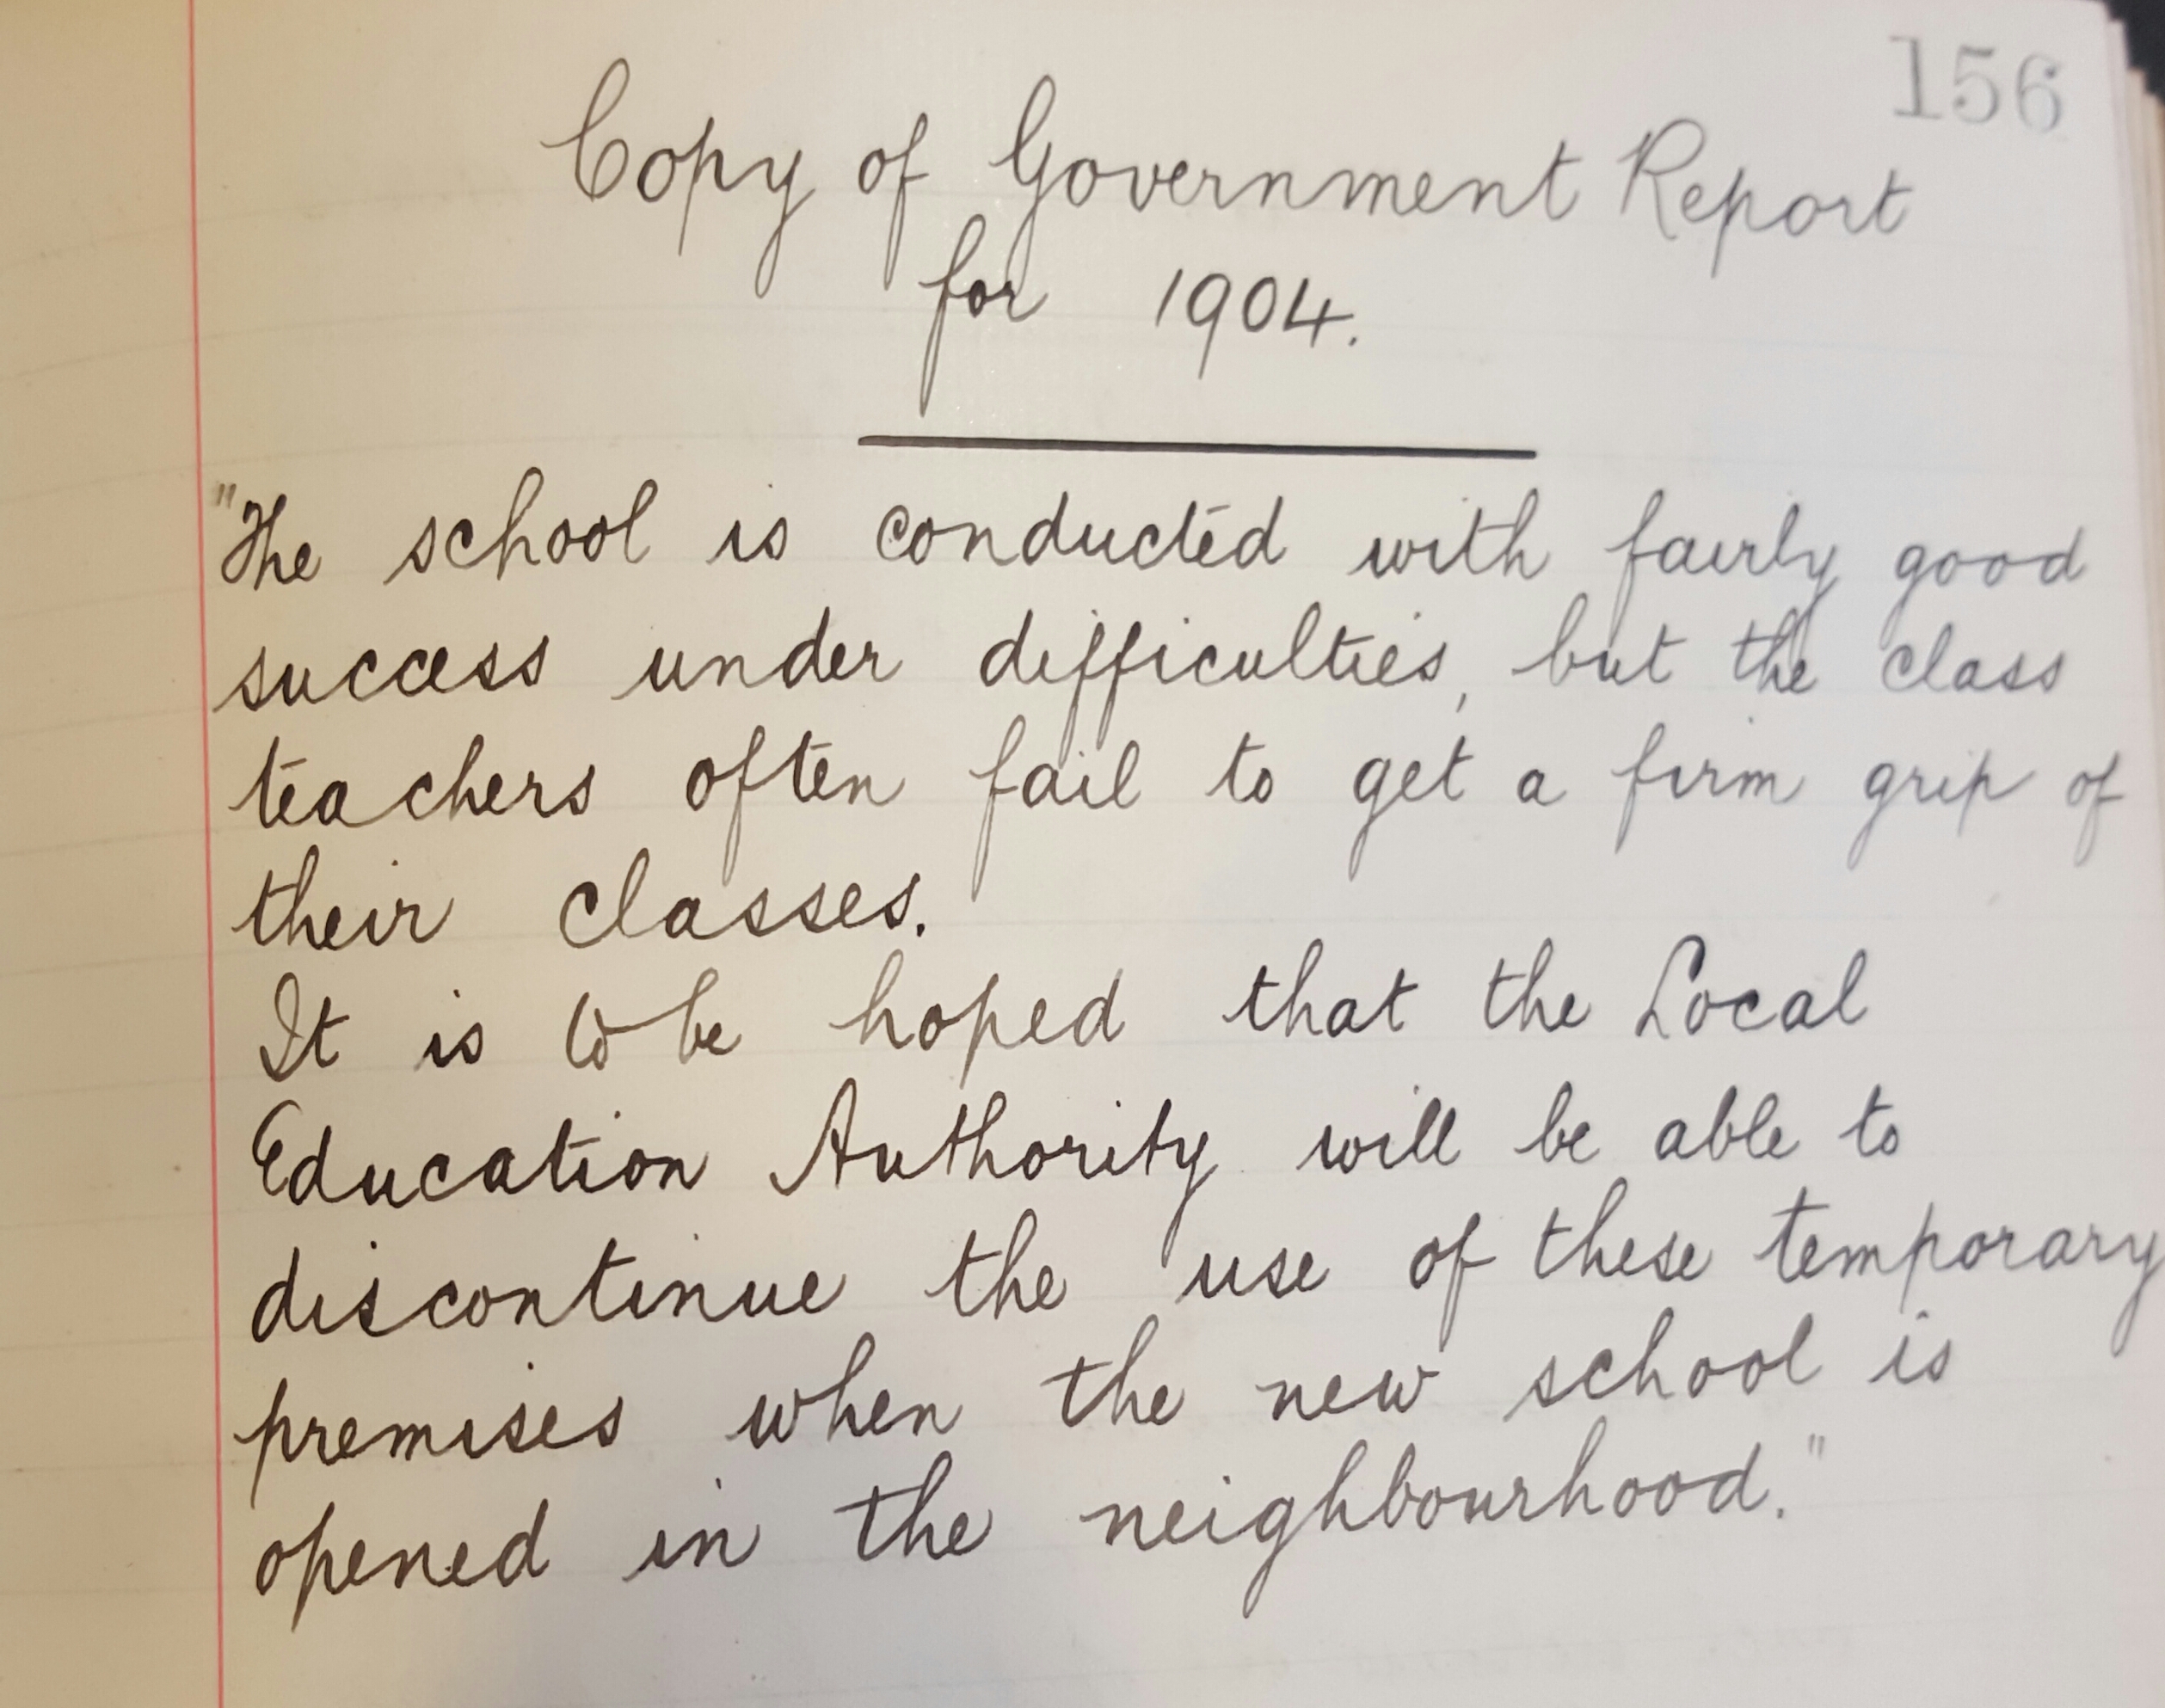 156
Copy of Government Report
for 1904.
"The school is conducted with fairly good
success under difficulties, but the class
teachers often fail to get a firm grip of
their classes.
It is to be hoped that the Local
Education Authority will be able to
discontinue the use of these temporary
premises when the new school is
opened in the neighbourhood."